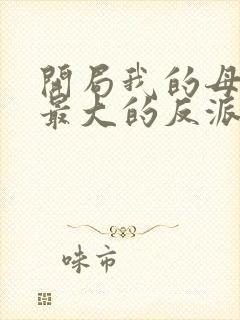 開局我的母
最大的反派
味市